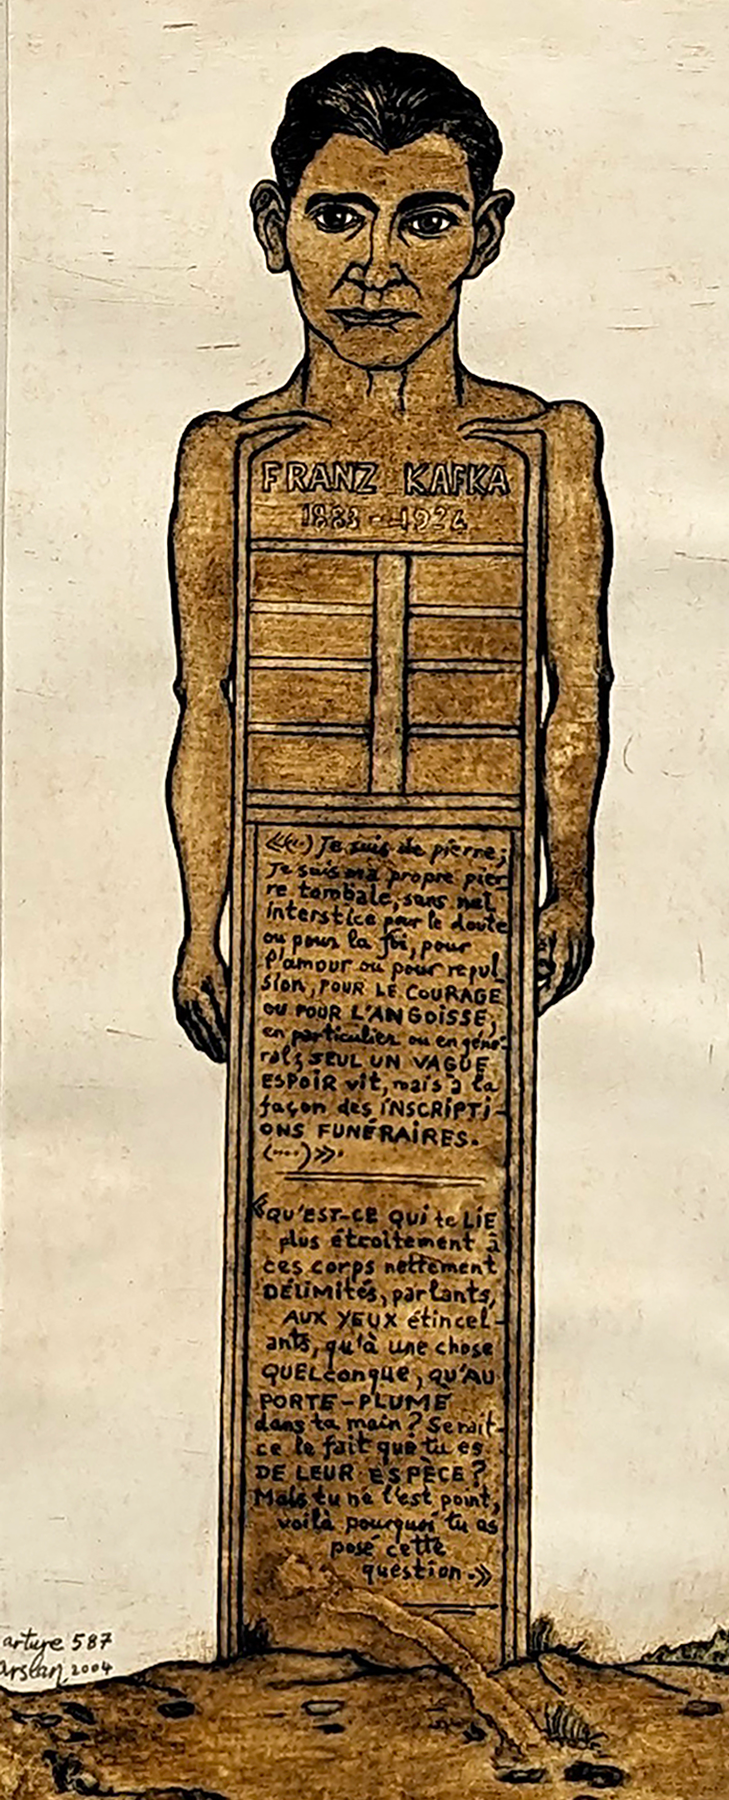 FRANZ KAFKA
1883 - 1924
«(...) Je suis de pierre;
Je suis ma propre pier-
re tombale, sans nul
interstice pour le doute
ou pour la foi, pour
l'amour ou pour repul_
sion, POUR LE COURAGE
OU POUR L'ANGOISSE,
en particulier ou en géné-
ral; SEUL UN VAGUE
ESPOIR vit, mais à la
façon des INSCRIPTI-
ONS FUNÉRAIRES.
(....)»
«QU'EST-CE QUi te LiE
plus étroitement à
ces corps nettement
DÉLIMITÉS, parlants,
AUX YEUX étincel-
ants, qu'à une chose
QUELconque, qu'AU
PORTE-PLUME
dans ta main? Serait-
ce le fait que tu es
DE LEUR ESPÈCE?
Mais tu ne l'est point,
voilà pourquoi tu as
posé cette
question.»
arture 587
arslan 2004